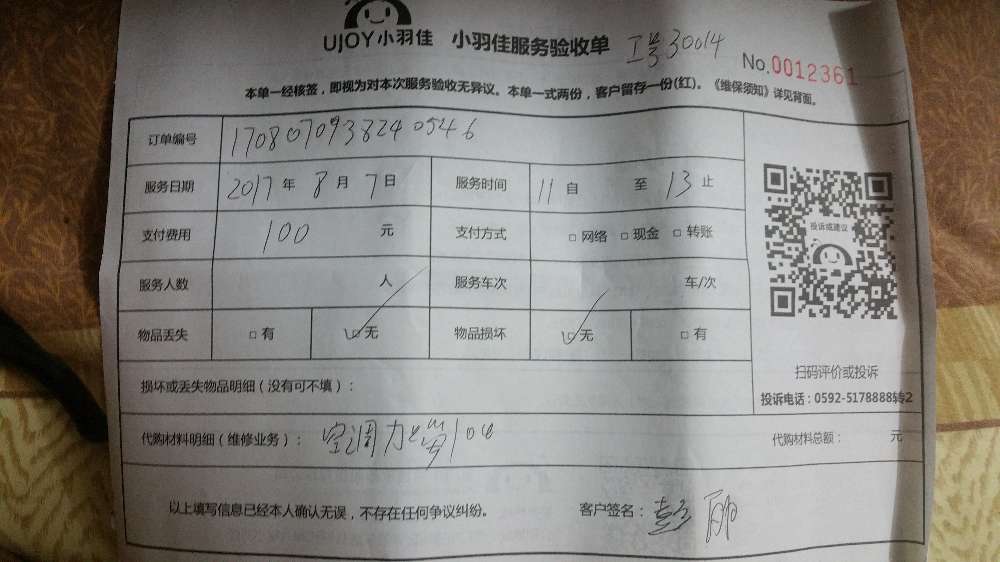 UJOY小羽佳 小羽佳服务验收单 工号30014
No.0012361
本单一经核签，即视为对本次服务验收无异议。本单一式两份，客户留存一份(红)。《维保须知》详见背面。
订单编号 170807093824 0546
服务日期 2017年8月7日 服务时间 11自 至 13止
支付费用 100 元 支付方式 □网络 □现金 □转账
投诉或建议
服务人数 人 服务车次 车/次
物品丢失 □有 ☑无 物品损坏 ☑无 □有
扫码评价或投诉
损坏或丢失物品明细（没有可不填）：
投诉电话：0592-5178888转2
代购材料明细（维修业务）： 空调加氟100 代购材料总额： 元
以上填写信息已经本人确认无误，不存在任何争议纠纷。 客户签名：彭丽